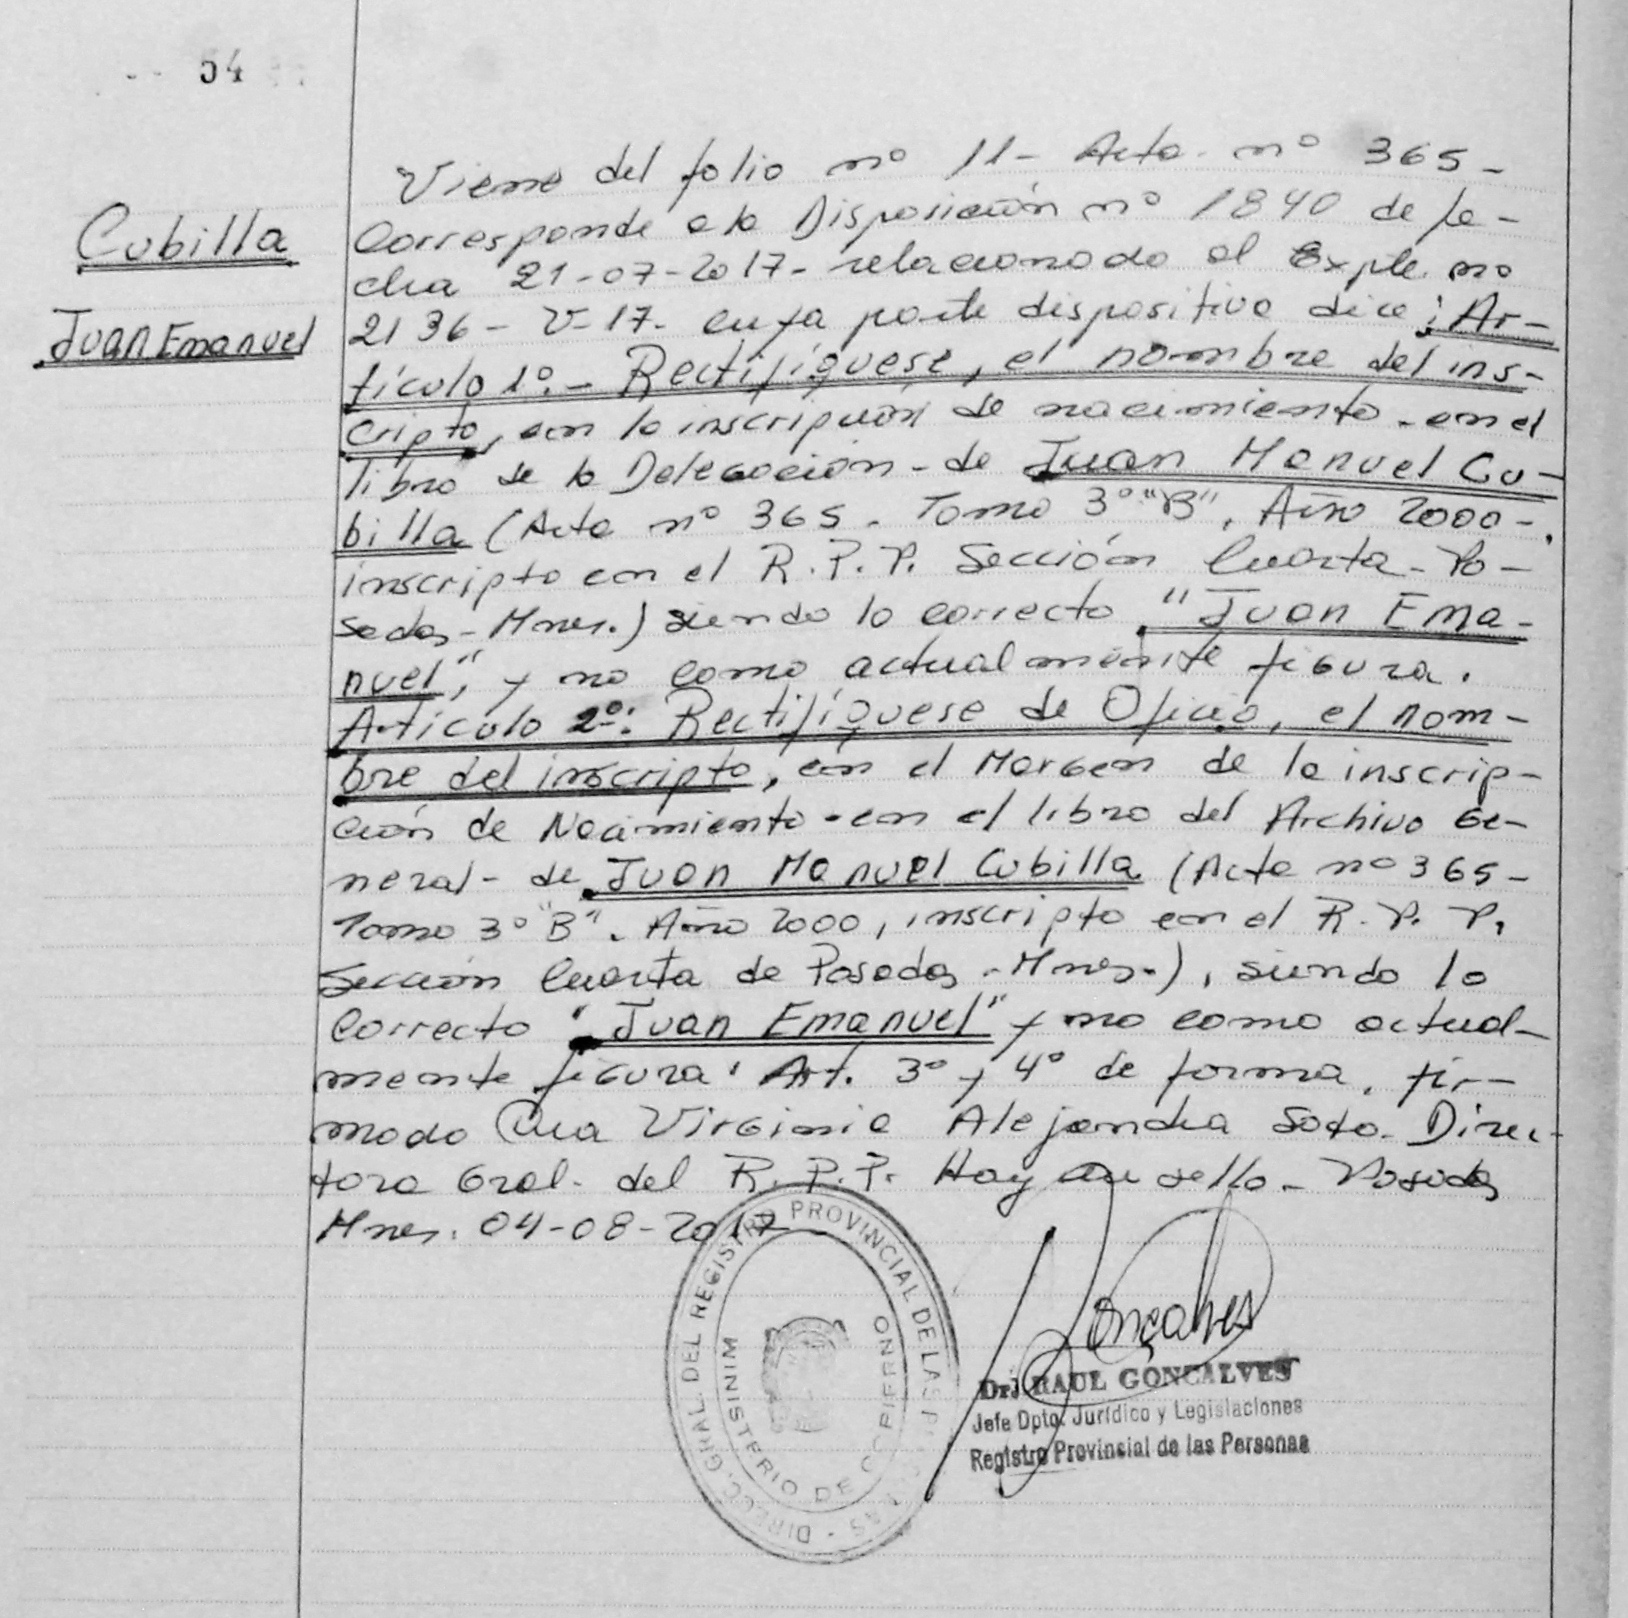 54
Cubilla
Juan Emanuel
Viene del folio nº 11- Acta nº 365-
Corresponde a la Disposición nº 1840 de fe-
cha 21-07-2017- relacionado al Expte nº
2136- V-17- cuya parte dispositiva dice: Ar-
tículo 1º.- Rectifíquese, el nombre del ins-
cripto, en la inscripción de nacimiento - en el
libro de la Delegación - de Juan Manuel Cu-
billa (Acta nº 365. Tomo 3º "B", Año 2000-,
inscripto en el R.P.P. Sección Cuarta- Po-
sadas- Mnes.) siendo lo correcto "Juan Ema-
nuel", y no como actualmente figura.
Artículo 2º: Rectifíquese de Oficio, el nom-
bre del inscripto, en el Margen de la inscrip-
ción de Nacimiento - en el libro del Archivo Ge-
neral- de Juan Manuel Cubilla (Acta nº 365-
Tomo 3º "B". Año 2000, inscripto en el R.P.P.
Sección Cuarta de Posadas -Mnes.), siendo lo
Correcto "Juan Emanuel" y no como actual-
mente figura. Art. 3º y 4º de forma. fir-
mado Virginia Alejandra Soto. Direc-
tora Gral. del R.P.P. Hay un sello- Posadas
Mnes. 04-08-2017
DIRECC. GRAL. DEL REGISTRO PROVINCIAL DE LAS PERSONAS
MINISTERIO DE GOBIERNO
Goncalves
Dr. J. RAUL GONCALVES
Jefe Dpto. Jurídico y Legislaciones
Registro Provincial de las Personas